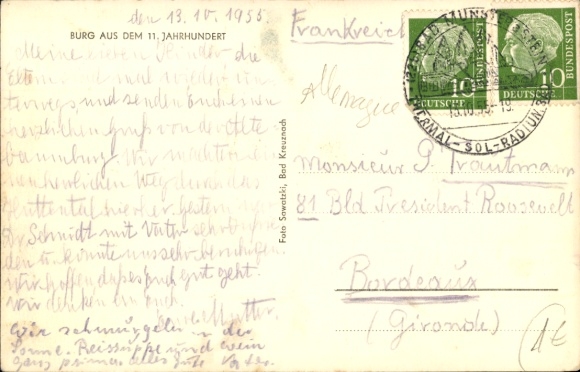 den 13.10.1955.
BURG AUS DEM 11. JAHRHUNDERT
Meine lieben Kinder – die
Eltern sind mal wieder un
terwegs und senden Euch einen
herzlichen Gruss von der Alte
baumburg. Wir machten einen
herrlichen Weg durch das
Huttental hierher, gestern
Dr. Schmidt mit Vati sehr
den u. konnte uns sehr beruhigen.
Wir hoffen dass es Euch gut geht
wir denken an Euch.
Mutter.
Wir schmurgeln in der
Sonne. Reissuppe und Wein
ganz prima. alles gute Vater.
Foto Sawatzki, Bad Kreuznach
Frankreich
Allemagne
BAD MÜNSTER A. STEIN
13.10.55.-19
THERMAL-SOL-RADIUM
DEUTSCHE BUNDESPOST
10
DEUTSCHE BUNDESPOST
10
Monsieur P. Trautmann
81 Bld President Roosevelt
Bordeaux
(Gironde)
1€